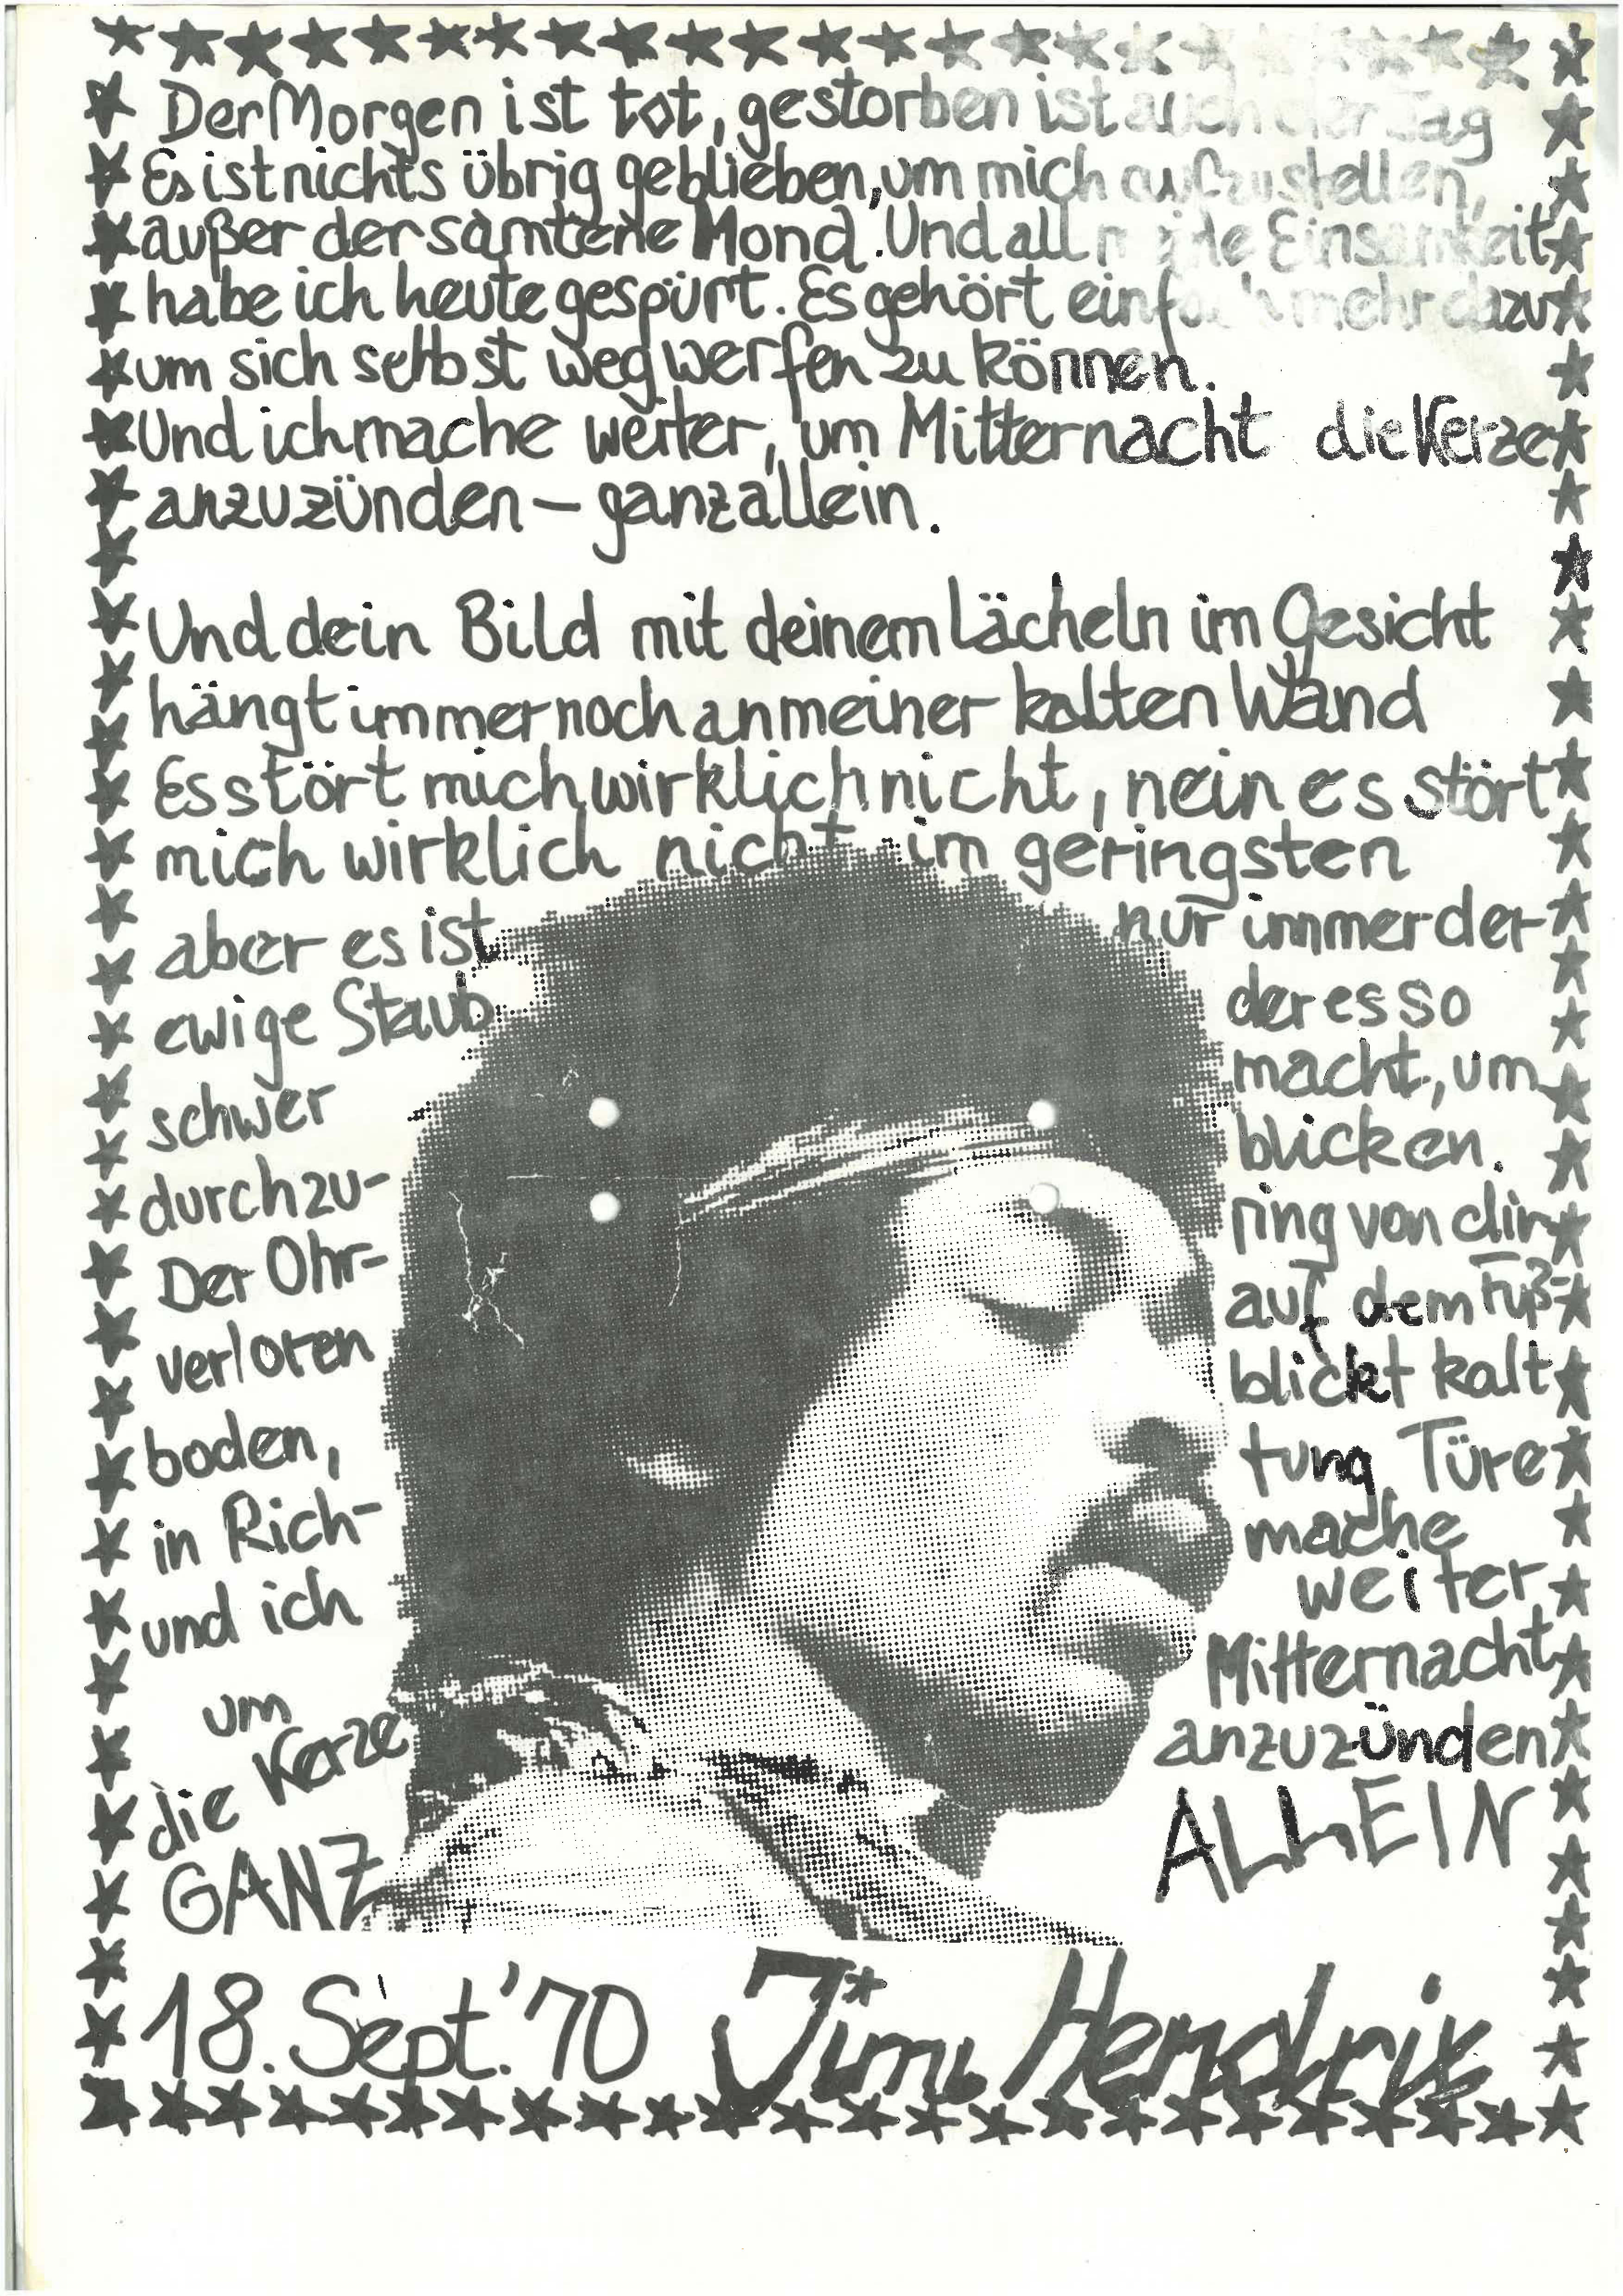 Der Morgen ist tot, gestorben ist auch der Tag
Es ist nichts übrig geblieben, um mich aufzustellen,
außer der samtene Mond. Und all meine Einsamkeit
habe ich heute gespürt. Es gehört einfach mehr dazu
um sich selbst wegwerfen zu können.
Und ich mache weiter, um Mitternacht die Kerze
anzuzünden – ganz allein.
Und dein Bild mit deinem Lächeln im Gesicht
hängt immer noch an meiner kalten Wand
Es stört mich wirklich nicht, nein es stört
mich wirklich nicht im geringsten
aber es ist nur immer der
ewige Staub der es so
schwer macht, um
durchzu- blicken.
Der Ohr- ring von dir
verloren auf dem Fuß-
boden, blickt kalt
in Rich- tung Türe
und ich mache
weiter
um Mitternacht
die Kerze anzuzünden
GANZ ALLEIN
18. Sept. '70 Jimi Hendrix